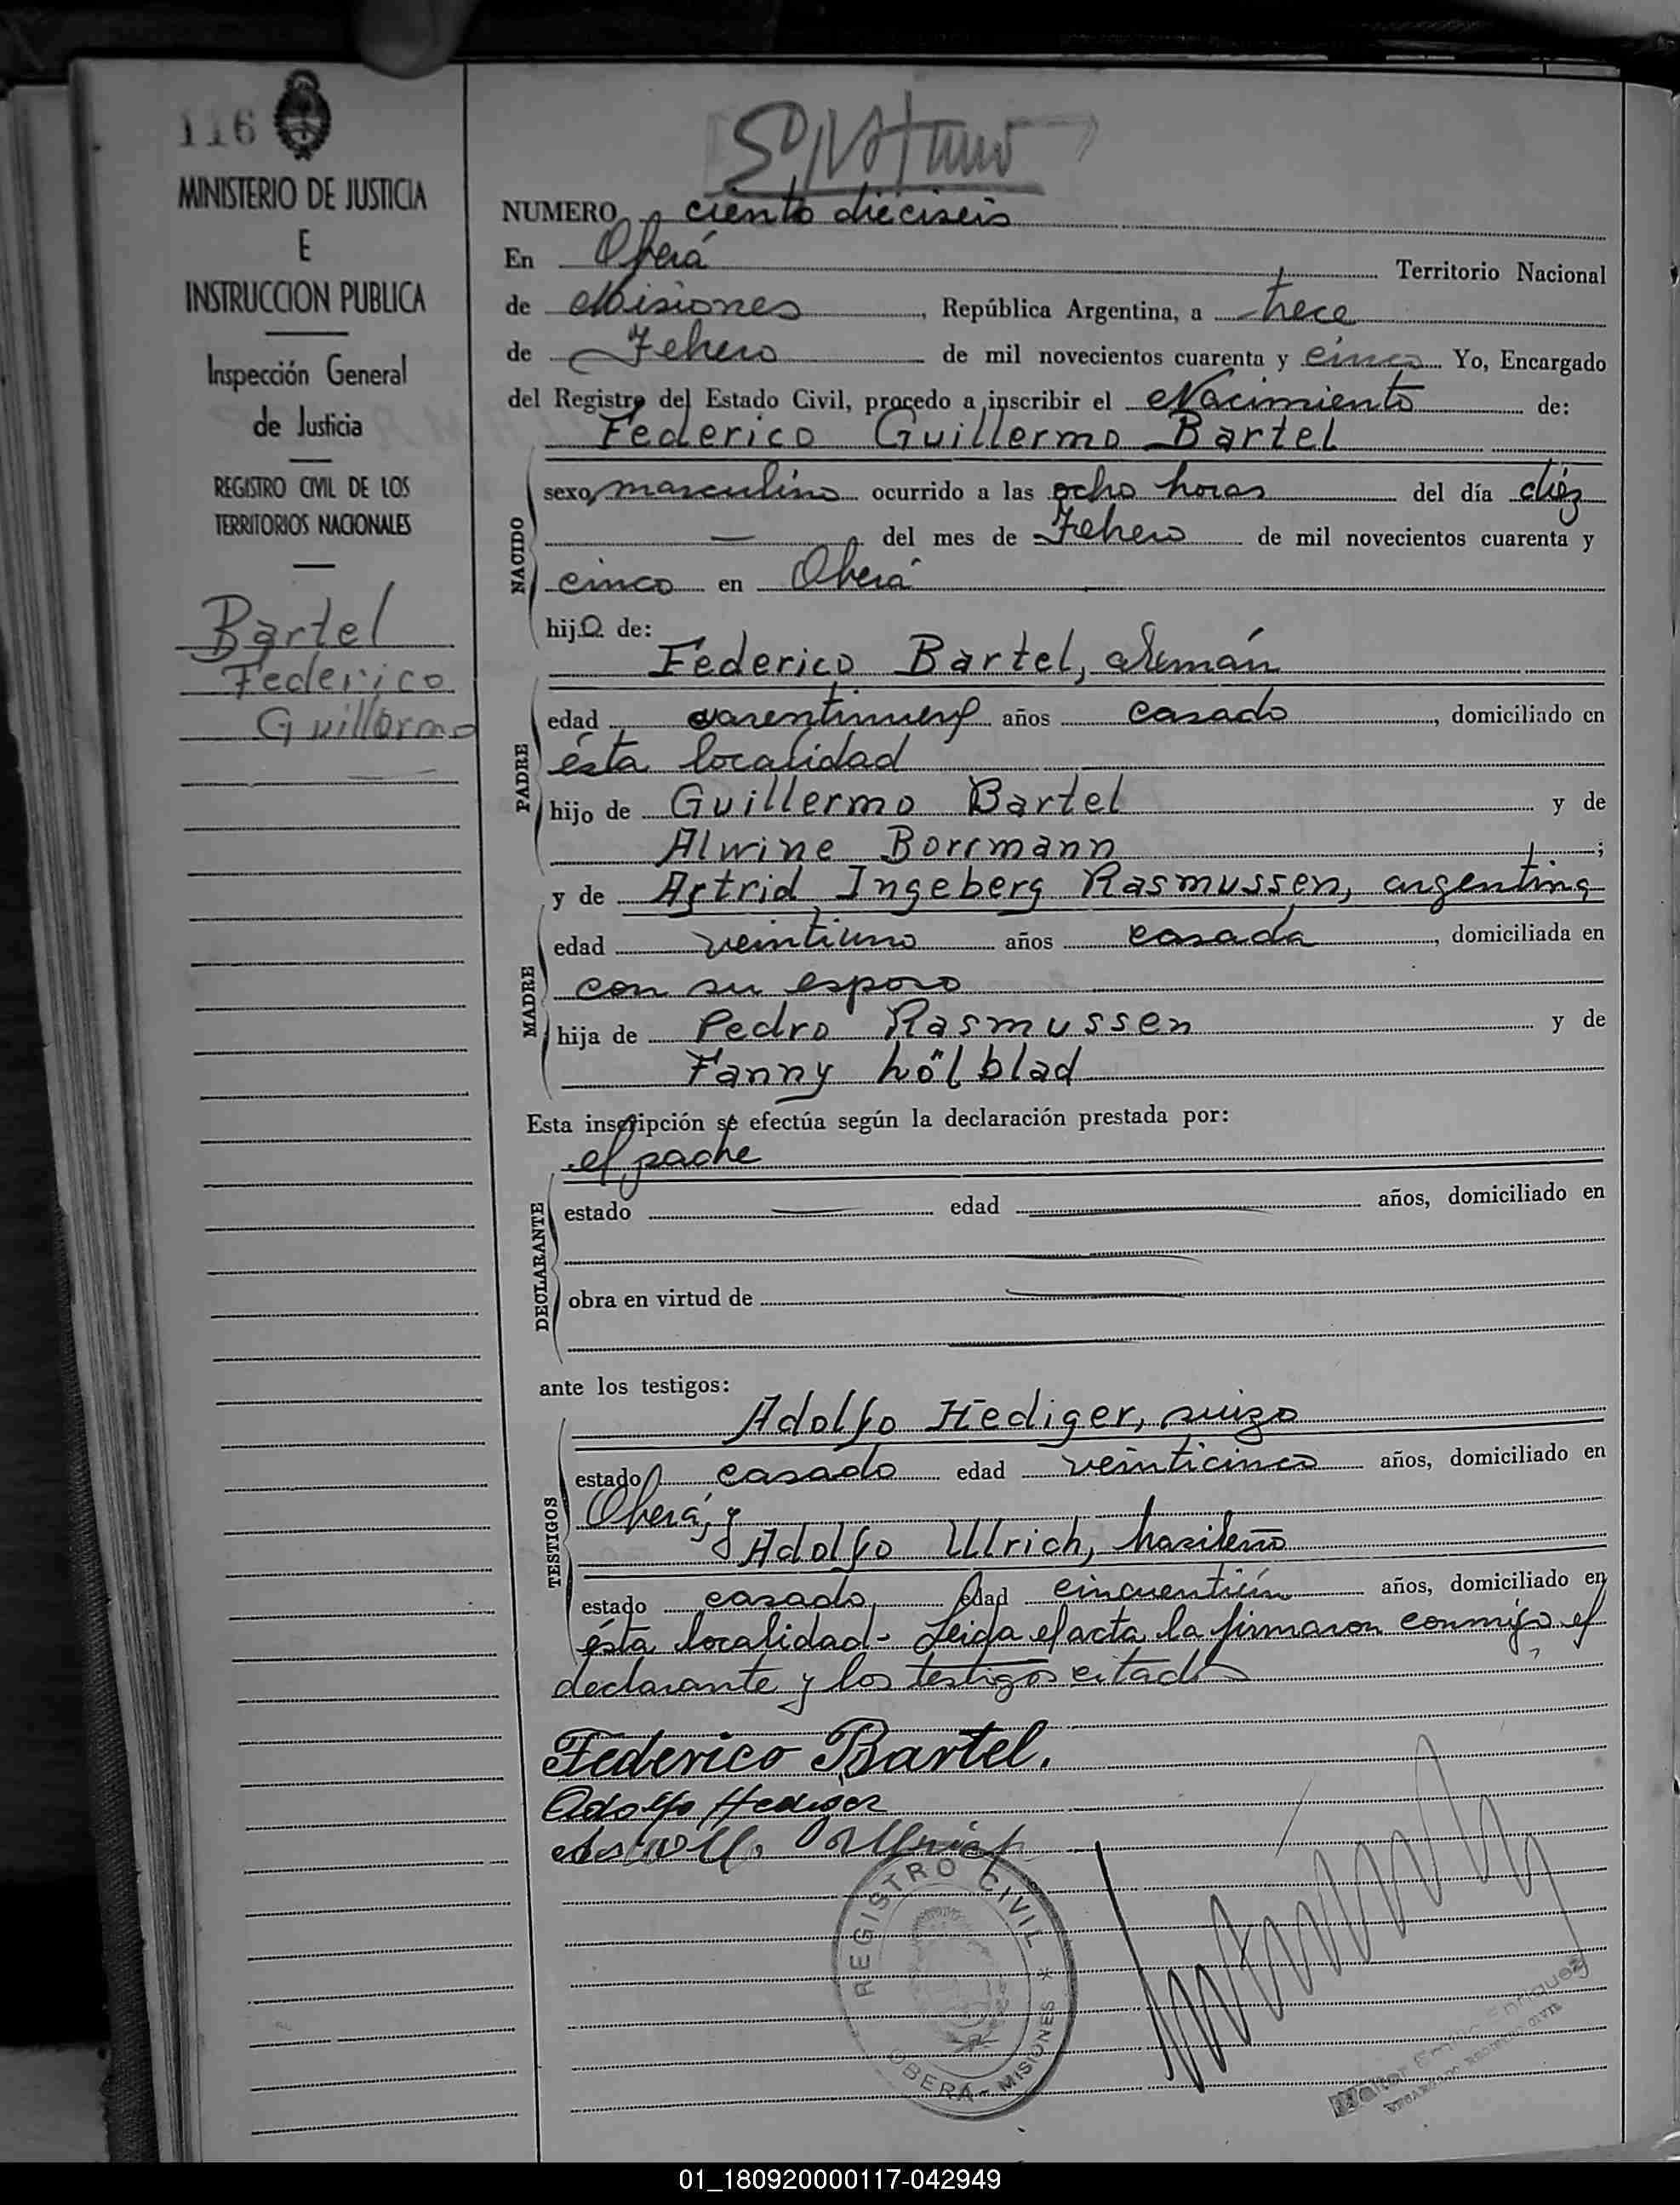 116
MINISTERIO DE JUSTICIA
E
INSTRUCCION PUBLICA
Inspección General
de Justicia
REGISTRO CIVIL DE LOS
TERRITORIOS NACIONALES
Bartel
Federico
Guillermo
NUMERO ciento dieciseis
En Oberá Territorio Nacional
de Misiones, República Argentina, a trece
de Febrero de mil novecientos cuarenta y cinco Yo, Encargado
del Registro del Estado Civil, procedo a inscribir el Nacimiento de:
Federico Guillermo Bartel
NACIDO
sexo masculino ocurrido a las ocho horas del día diez
del mes de Febrero de mil novecientos cuarenta y
cinco en Oberá
hijo de:
Federico Bartel, alemán
PADRE
edad años casado, domiciliado en
ésta localidad
hijo de Guillermo Bartel y de
Alwine Borrmann;
y de Astrid Ingeberg Rasmussen, argentina
MADRE
edad veintiuno años casada, domiciliada en
con su esposo
hija de Pedro Rasmussen y de
Fanny hölblad
Esta inscripción se efectúa según la declaración prestada por:
el padre
DECLARANTE
estado edad años, domiciliado en
obra en virtud de
ante los testigos:
Adolfo Hediger, suizo
TESTIGOS
estado casado edad veinticinco años, domiciliado en
Oberá, y
Adolfo Ullrich, brasileño
estado casado edad cincuentiún años, domiciliado en
ésta localidad- Leida el acta la firmaron conmigo el
declarante y los testigos citados
Federico Bartel.
Adolfo Hediger
REGISTRO CIVIL
OBERÁ - MISIONES
Enriquez
ENCARGADO REGISTRO CIVIL
01_180920000117-042949